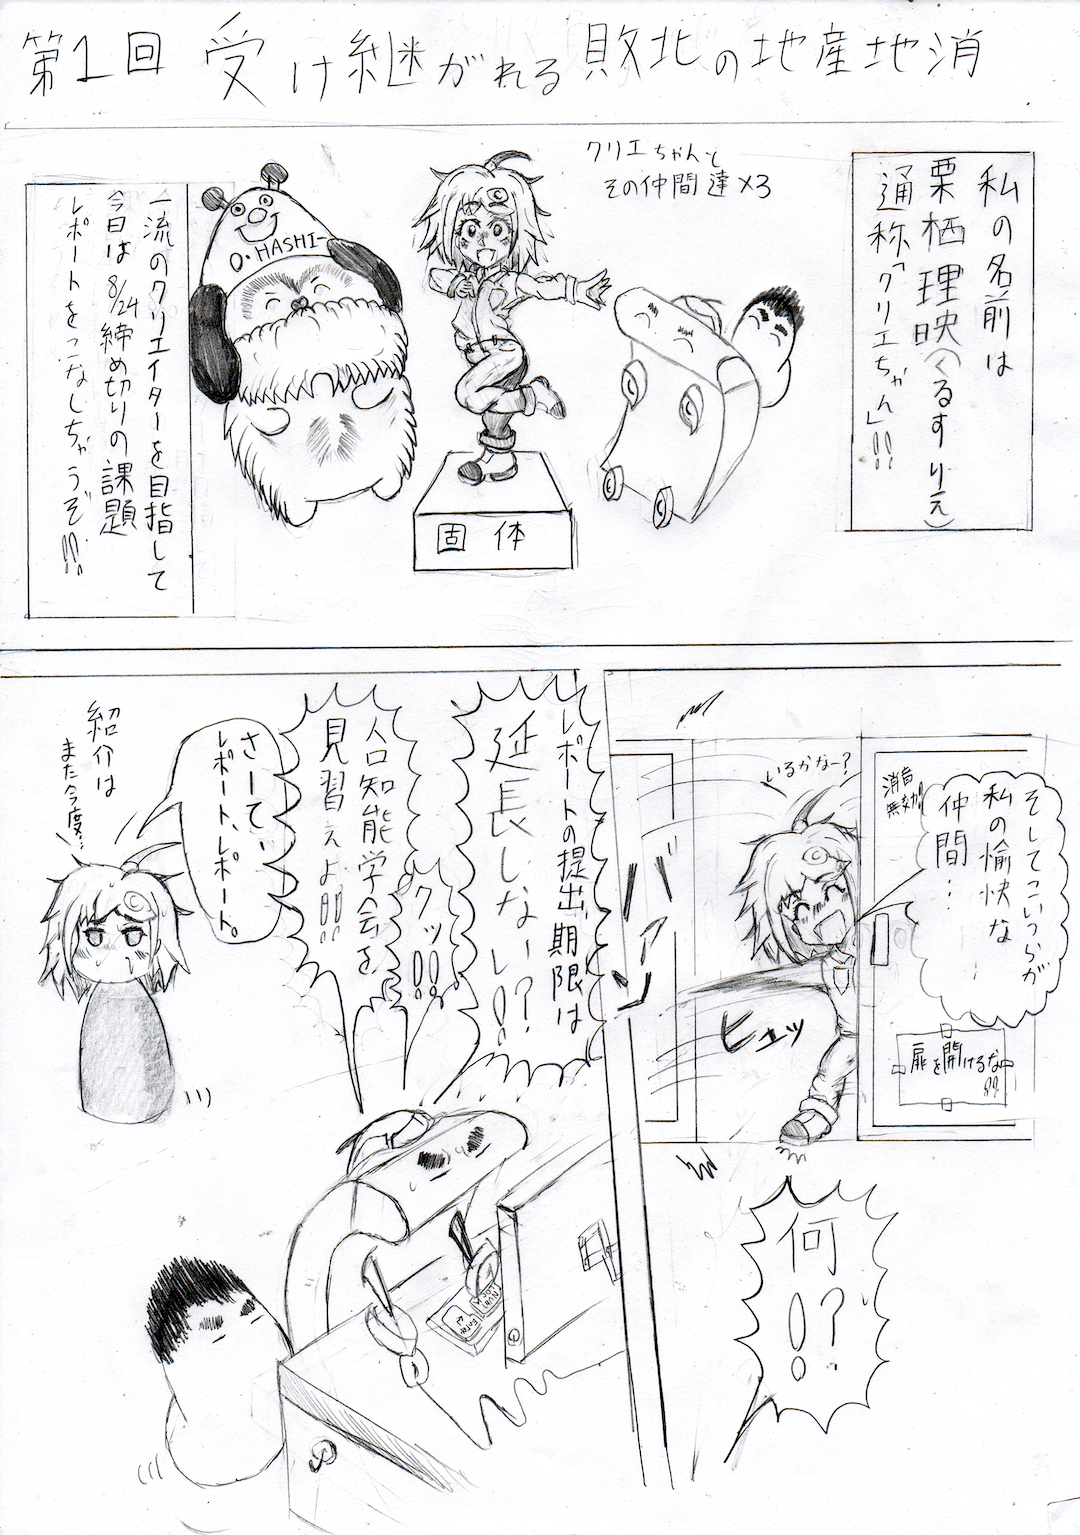 第1回 受け継がれる敗北の地産地消
私の名前は
栗栖理映(くるすりえ)
通称「クリエちゃん」!!
クリエちゃんと
その仲間達×3
O・HASHI-
固体
一流のクリエイターを目指して
今日は8/24締め切りの課題
レポートをこなしちゃうぞ!!
そしてこいつらが
私の愉快な
仲間…
消音
無効!
いるかなー?
バァン
ヒュッ
扉を開けるな!!
何?!
レポートの提出期限は
延長しなぁー?!
クッ!!
人工知能学会を
見習えよ!!
さーて、
レポート、レポート。
紹介は
また今度…
Enter
NUM
LOCK